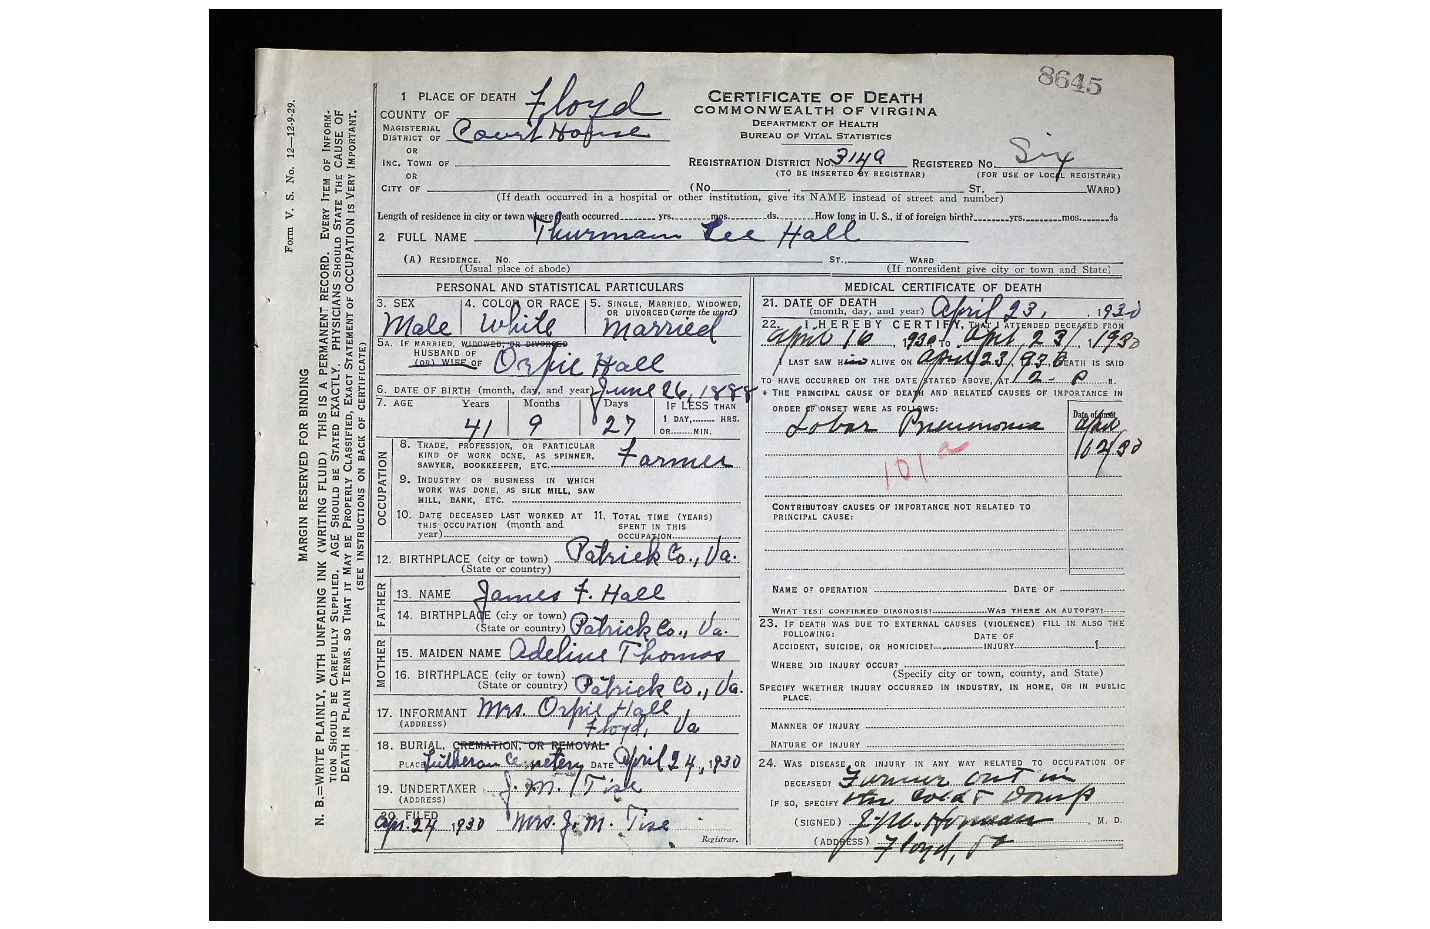 8645
1 PLACE OF DEATH Floyd
COUNTY OF
MAGISTERIAL DISTRICT OF Court House
OR
INC. TOWN OF
OR
CITY OF
CERTIFICATE OF DEATH
COMMONWEALTH OF VIRGINIA
DEPARTMENT OF HEALTH
BUREAU OF VITAL STATISTICS
REGISTRATION DISTRICT No. 3149 REGISTERED No. Six
(TO BE INSERTED BY REGISTRAR) (FOR USE OF LOCAL REGISTRAR)
(No. ST. WARD)
(If death occurred in a hospital or other institution, give its NAME instead of street and number)
Length of residence in city or town where death occurred yrs. mos. ds. How long in U. S., if of foreign birth? yrs. mos. ds
2 FULL NAME Thurman Lee Hall
(A) RESIDENCE. No. ST., WARD
(Usual place of abode) (If nonresident give city or town and State)
PERSONAL AND STATISTICAL PARTICULARS
3. SEX Male
4. COLOR OR RACE White
5. SINGLE, MARRIED, WIDOWED, OR DIVORCED (write the word) Married
5A. IF MARRIED, WIDOWED, OR DIVORCED
HUSBAND OF
(OR) WIFE OF Orpie Hall
6. DATE OF BIRTH (month, day, and year) June 26, 1888
7. AGE Years Months Days IF LESS THAN
41 9 27 1 DAY, HRS.
OR MIN.
OCCUPATION
8. TRADE, PROFESSION, OR PARTICULAR
KIND OF WORK DONE, AS SPINNER,
SAWYER, BOOKKEEPER, ETC. Farmer
9. INDUSTRY OR BUSINESS IN WHICH
WORK WAS DONE, AS SILK MILL, SAW
MILL, BANK, ETC.
10. DATE DECEASED LAST WORKED AT
THIS OCCUPATION (month and
year)
11. TOTAL TIME (YEARS)
SPENT IN THIS
OCCUPATION
12. BIRTHPLACE (city or town) Patrick Co., Va.
(State or country)
FATHER
13. NAME James F. Hall
14. BIRTHPLACE (city or town)
(State or country) Patrick Co., Va.
MOTHER
15. MAIDEN NAME Adeline Thomas
16. BIRTHPLACE (city or town)
(State or country) Patrick Co., Va.
17. INFORMANT Mrs. Orpie Hall
(ADDRESS) Floyd, Va
18. BURIAL, CREMATION, OR REMOVAL
PLACE Lutheran Cemetery DATE April 24, 1930
19. UNDERTAKER J. M. Tise
(ADDRESS)
20. FILED
Apr. 24 1930 Mrs. J. M. Tise
Registrar.
MEDICAL CERTIFICATE OF DEATH
21. DATE OF DEATH
(month, day, and year) April 23, 1930
22. I HEREBY CERTIFY, THAT I ATTENDED DECEASED FROM
April 16, 1930 TO Apr. 23, 1930
I LAST SAW Him ALIVE ON April 23, 1930 DEATH IS SAID
TO HAVE OCCURRED ON THE DATE STATED ABOVE, AT 12- P M.
* THE PRINCIPAL CAUSE OF DEATH AND RELATED CAUSES OF IMPORTANCE IN
ORDER OF ONSET WERE AS FOLLOWS:
Date of onset
Lobar Pneumonia April
101 a
CONTRIBUTORY CAUSES OF IMPORTANCE NOT RELATED TO
PRINCIPAL CAUSE:
NAME OF OPERATION DATE OF
WHAT TEST CONFIRMED DIAGNOSIS? WAS THERE AN AUTOPSY?
23. IF DEATH WAS DUE TO EXTERNAL CAUSES (VIOLENCE) FILL IN ALSO THE
FOLLOWING:
DATE OF
ACCIDENT, SUICIDE, OR HOMICIDE? INJURY 1
WHERE DID INJURY OCCUR?
(Specify city or town, county, and State)
SPECIFY WHETHER INJURY OCCURRED IN INDUSTRY, IN HOME, OR IN PUBLIC
PLACE.
MANNER OF INJURY
NATURE OF INJURY
24. WAS DISEASE OR INJURY IN ANY WAY RELATED TO OCCUPATION OF
DECEASED? Farmer out in
IF SO, SPECIFY the Cold & Damp
(SIGNED) M. D.
(ADDRESS) Floyd, Va
Form V. S. No. 12—12-9-29.
MARGIN RESERVED FOR BINDING
N. B.—WRITE PLAINLY, WITH UNFADING INK (WRITING FLUID) THIS IS A PERMANENT RECORD. EVERY ITEM OF INFORM-
TION SHOULD BE CAREFULLY SUPPLIED. AGE SHOULD BE STATED EXACTLY. PHYSICIANS SHOULD STATE THE CAUSE OF
DEATH IN PLAIN TERMS, SO THAT IT MAY BE PROPERLY CLASSIFIED, EXACT STATEMENT OF OCCUPATION IS VERY IMPORTANT.
(SEE INSTRUCTIONS ON BACK OF CERTIFICATE)